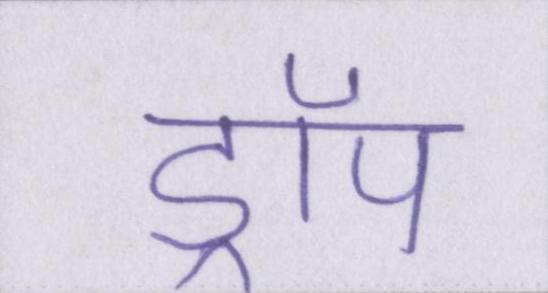 ड्रॉप